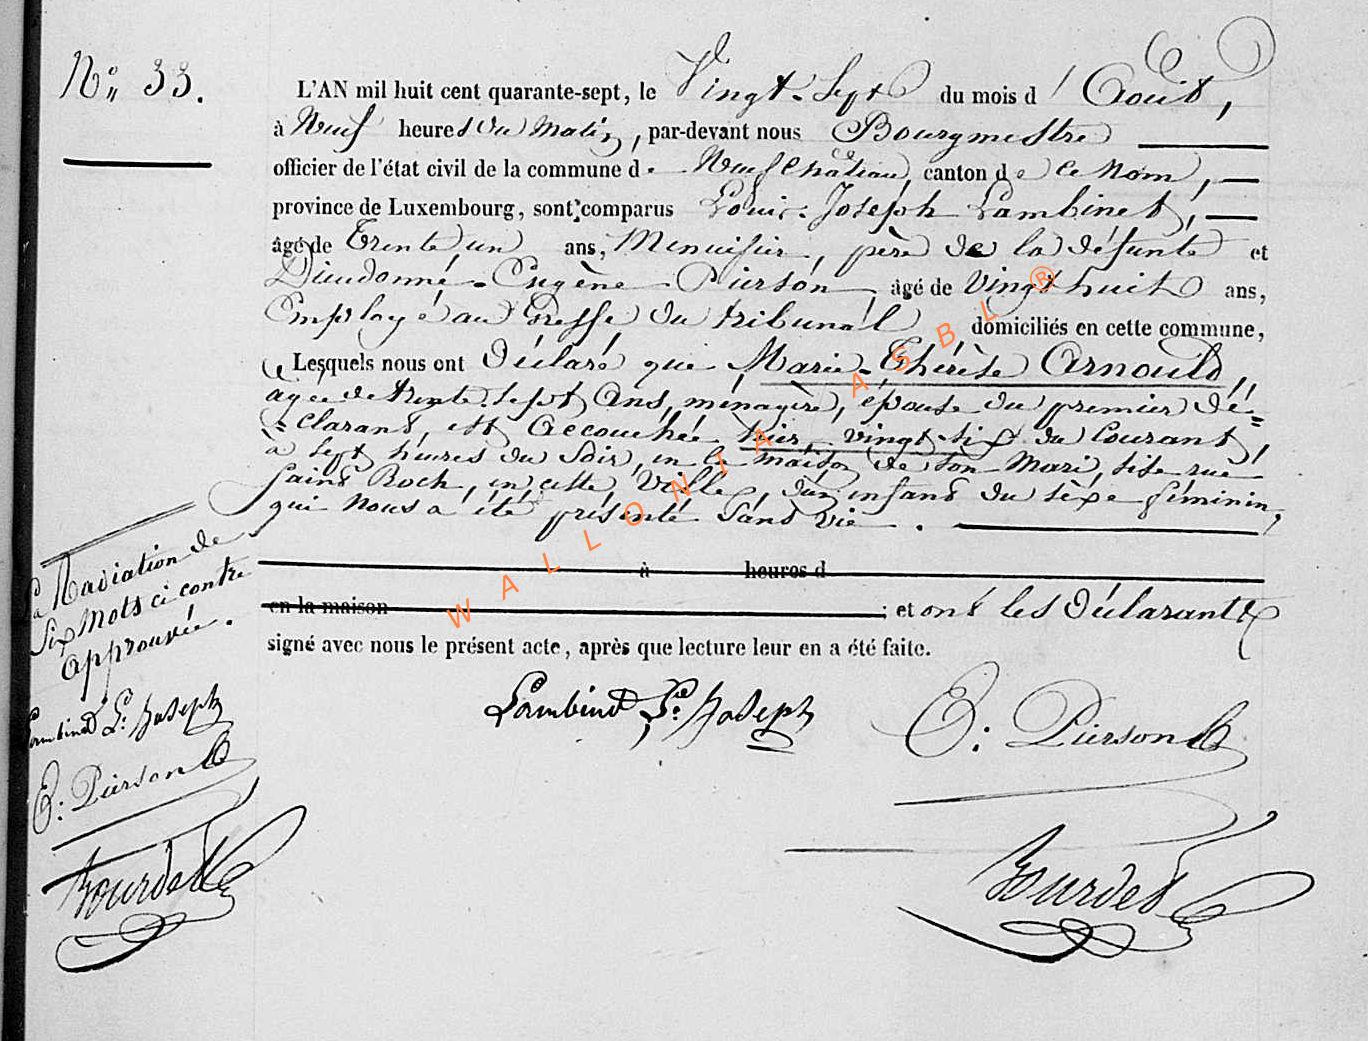 N° 33.
L'AN mil huit cent quarante-sept, le Vingt-Sept du mois d'Août,
à Neuf heures du Matin, par-devant nous Bourgmestre
officier de l'état civil de la commune de Neufchâteau, canton de ce nom,
province de Luxembourg, sont comparus Louis-Joseph Lambinet,
âgé de Trente un ans, Menuisier, père de la défunte et
Dieudonné-Eugène Pierson, âgé de Vingt huit ans,
Employé au Greffe du tribunal domiciliés en cette commune,
Lesquels nous ont Déclaré que Marie-Thérèse Arnould,
agée de trente-sept Ans, ménagère, épouse du premier Dé=
=clarant, est Accouchée hier, vingt-six du Courant,
à Sept heures du Soir, en la maison de son Mari, sise rue
Saint Roch, en cette Ville, d'un enfant du sèxe féminin,
qui Nous a été présenté Sans vie.
à heures d
en la maison ; et ont les Déclarants
signé avec nous le présent acte, après que lecture leur en a été faite.
La Radiation de
Six Mots ci contre
Approuvée.
Lambinet Ls. Joseph
E: Pierson
Bourdet
Lambinet Ls. Joseph E: Pierson
Bourdet
WALLONIA ASBL ®